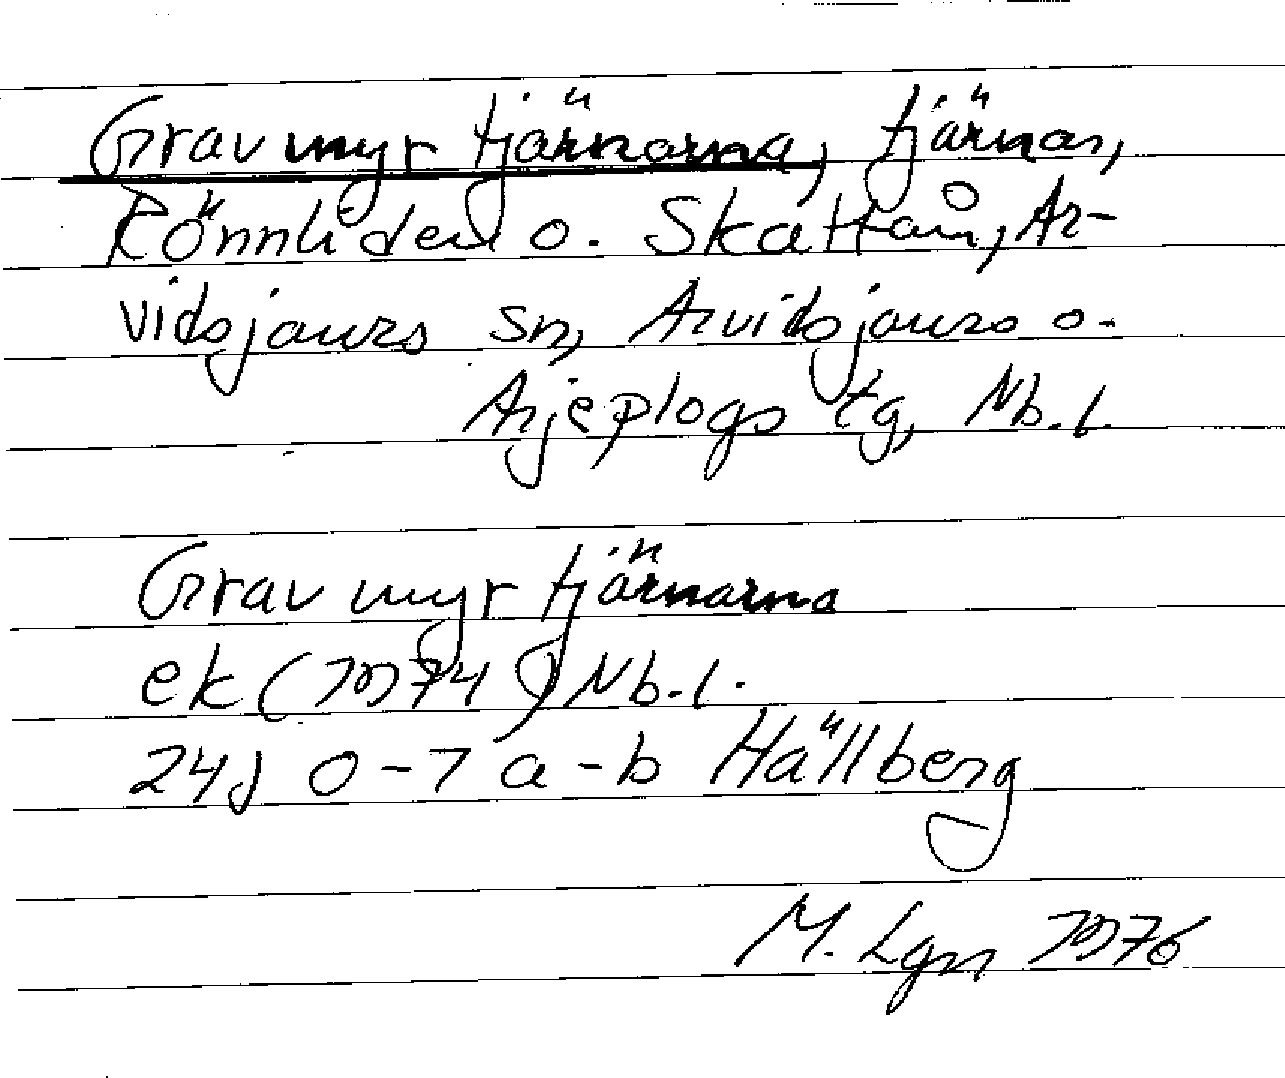 Gravmyrtjärnarna, tjärnar,
Rönnliden o. Skattån, Ar-
vidsjaurs sn, Arvidsjaurs o.
Arjeplogs tg, Nb. l.
Gravmyrtjärnarna
ek (1974) Nb. l.
24J 0-7 a-b Hällberg
M. Lgn 1976